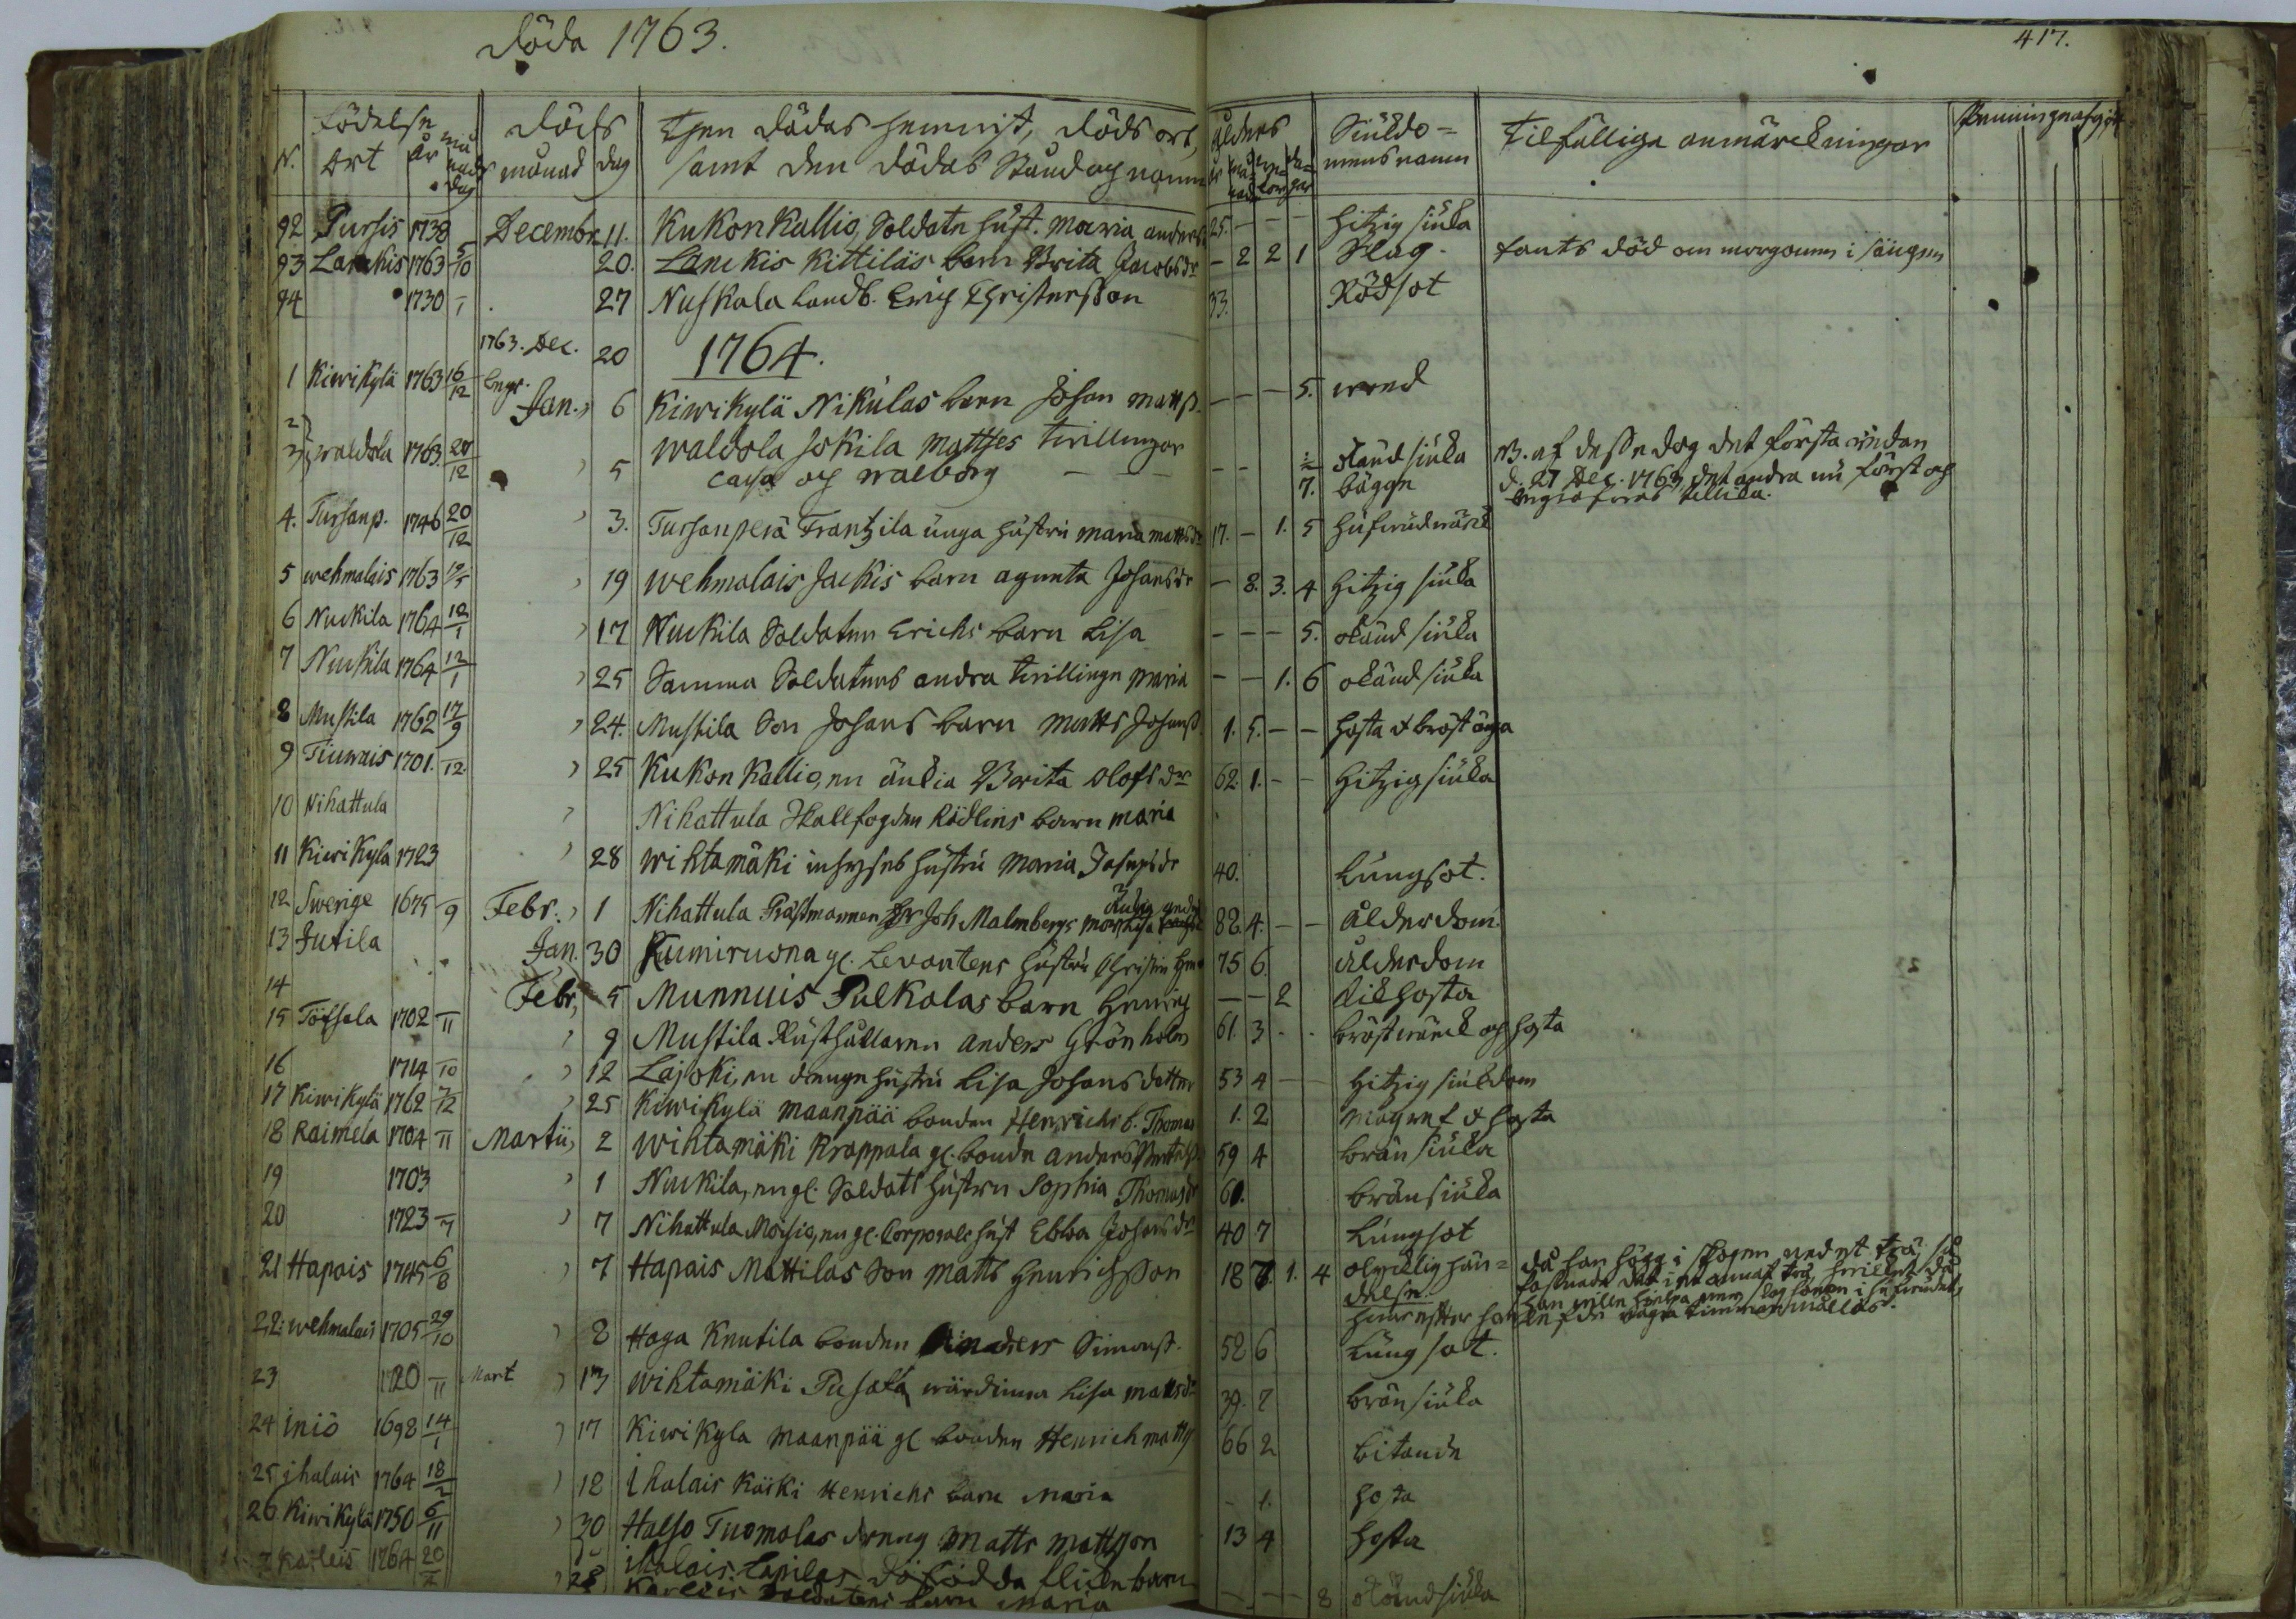 Döda 1763.
417.
N. Födelse Ort år månads dag Döds månad dag Then Dödas hemvist, Döds ort, samt den Dödas Stånd och namn Ålders år månader weckor dagar Siukdomens namn Tilfällige anmärckningar
92 Pursis 1738 Decembr. 11. Kukonkallio, Soldatn hust. Maria anders 25. - - - hitzig siuka
93 Lanckis 1763 5/10 20. Lanckis Kittiläs barn Brita Jacobsdr - 2 2 1 Slag. fants död om morgonen i sängen
94 1730 27 Nuskala landb. Erich Christersson 33. Rödsot
1763. Dec. 20 1764.
1 Kiwikylä 1763 16/12 begr. Jan. 6 Kiwikylä Nikulas barn Johan matts. - - - 5. wred
2 3 waldola 1763. 27/12 5 waldola Jokila Matthes twillingar Caisa och walborg - - ½ 7. okänd siuka bägge NB. af desse dog det första redan d. 27 Dec. 1763, det andra nu först och begrofwos tillika.
4. Tursanp. 1746 20/12 3. Tursanperä Frantzila unga hustru maria mattsdr 17. - 1. 5 hufwudwärck
5 wehmalais 1763 12/5 19 wehmalais Jackis barn agneta Johansdr - 8. 3. 4 hitzig siuka
6 Nuckila 1764 12/1 17 Nuckila Soldatens Erichs barn Lisa - - - 5. okänd siuka
7 Nuckila 1764 12/1 25 Samma Soldatens andra twillinge Maria - - 1. 6 okänd siuka
8 Mustila 1762 17/9 24. Mustila Son Johans barn matts Johanss. 1. 5. - - hosta & bröst
9 Tiuwais 1701. 12. 25 Kukonkallio, en änkia Brita Olofsdr 62. 1. - - hitzig siuka
10 Nihattula Nihattula Skallfogden Rödlins barn maria
11 Kiwikyla 1723 28 wihtamäki inhyses hustru Maria Josepsdr 40. Lungsot.
12 Swerige 1675 9 Febr. 1 Nihattula Prästmannen Hr Joh. Malmbergs mor 82. 4. - - Ålderdom.
13 Jutila Jan. 30 Rumiruona gl. Levantens hustru Christin 75 6. Ålderdom
14 Febr. 5 Munnuis Pulkalas barn Henrich - - 2 kikhosta
15 Töfsala 1702 11 9 Mustila Rusthållaren Anders Grönholm 61. 3 - - bröstwärck och hosta
16 1714 10 12 Lajoki, en drengs hustru Lisa Johans dotter 53 4 - - hitzig siukdom
17 Kiwikylä 1762 7/12 25 Kiwikylä maanpää bonden Henrichs b. Thomas 1. 2 magref & hosta
18 Raimela 1704 11 Martii, 2 wihtamäki Krappala gl. bonde anders 59 4 brän siuka
19 1703 1 Nuckila, en gl. Soldats hustru Sophia Thomasdr 60. bränsiuka
20 1723 7 7 Nihattula Moisio, en gl. Corporals hust Ebba Johansdr 40 7 Lungsot
21 Hapais 1745 6/8 7 Hapais Mattilas Son matts Henrichsson 18 7. 1. 4 olycklig händelse. då han högg i skogen nedet trä, så fastnade det i et annat trä, hwilket då han wille hielpa neder slog honom i hufwudet, hwarefter han lefde några timmar mållös.
22: wehmalais 1705 29/10 8 Haga Knutila bonden Anders Simonss. 58 6 Lungsot.
23 1720 11 Mart 13 wihtamäki Pusala wärdinna Lisa mattsdr 39. 2 bränsiuka
24 iniö 1698 14/1 17 Kiwikyla maanpää gl bonden Henrich matts 66 2 bitande
25 ihalais 1764 18/2 18 ihalais Käski Henrichs barn Maria - 1. hosta
26 Kiwikylä 1750 6/11 30 Halso Tuomolas dreng Matts mattsson 13 4 hosta
ihalais Lapilas dödfödda flicke barn
Karleis 1764 20/2 28 Karleis Soldatens barn Maria - - 8 okänd siuka